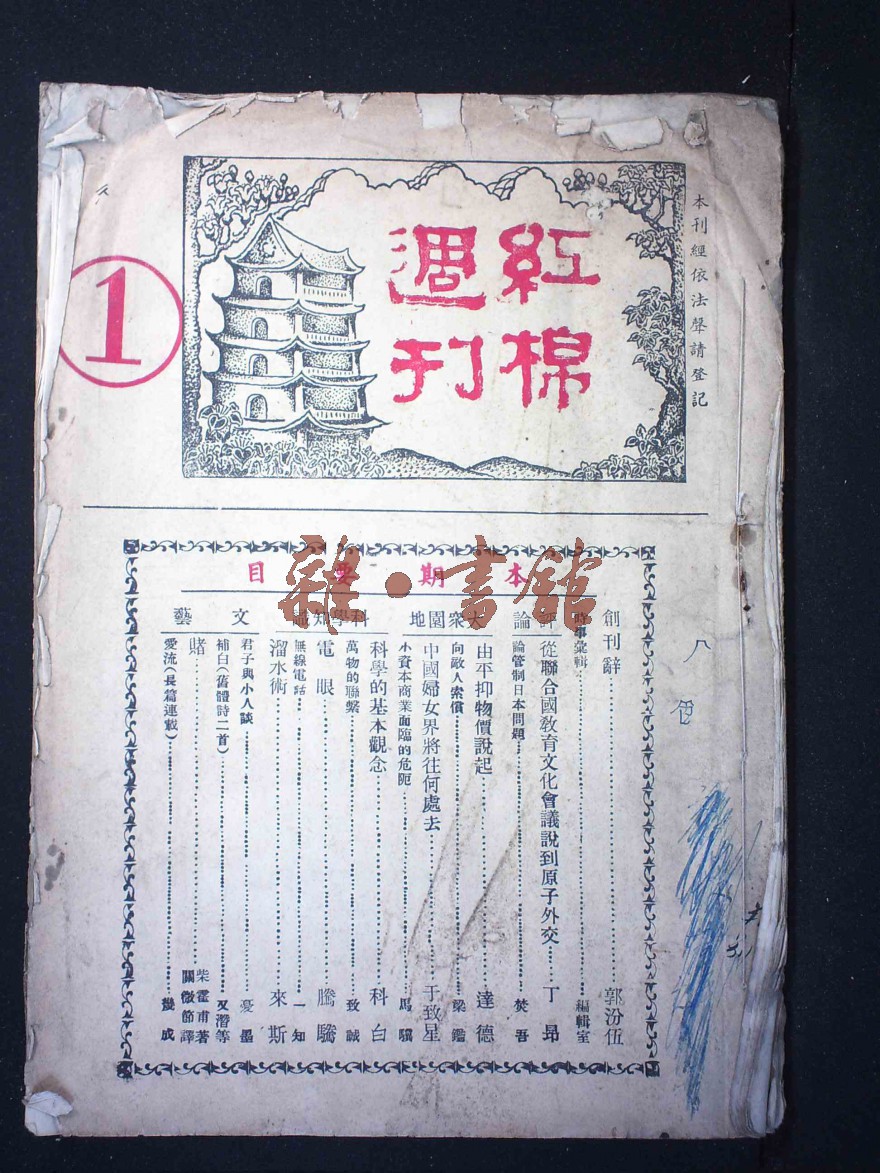 本刊經依法聲請登記
紅棉
週刊
1
本期要目
創刊辭……郭汾伍
時事彙輯……編輯室
評論
從聯合國教育文化會議說到原子外交……丁昂
論管制日本問題……焚吾
大眾園地
由平抑物價說起……達德
向敵人索償……梁鑑
中國婦女界將往何處去……于致星
小資本商業面臨的危阨……馬驥
科學知識
科學的基本觀念……科白
萬物的聯繫……致誠
電眼……騰驤
無線電話……一知
溜水術……來斯
文藝
君子與小人談……憂墨
補白(舊體詩二首)……又潛等
賭……柴霍甫著
關微節譯
愛流(長篇連載)……幾成
雜·書館